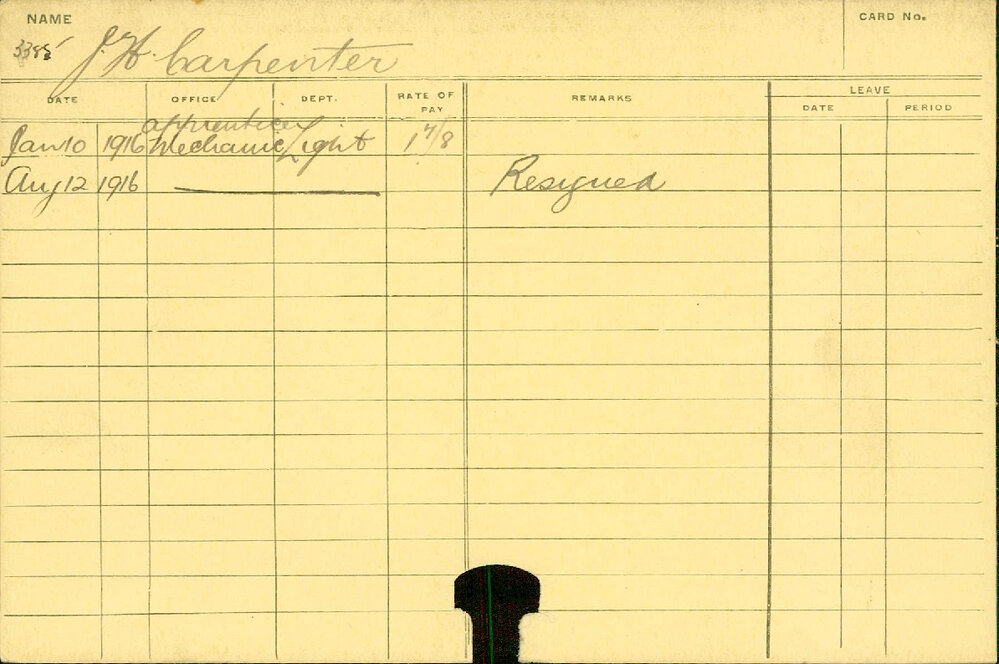 NAME
CARD No.
3385 J. H. Carpenter
DATE OFFICE DEPT. RATE OF PAY REMARKS LEAVE
DATE PERIOD
apprentice
Jan 10 1916 Mechanic Light 1 7/8
Aug 12 1916 Resigned